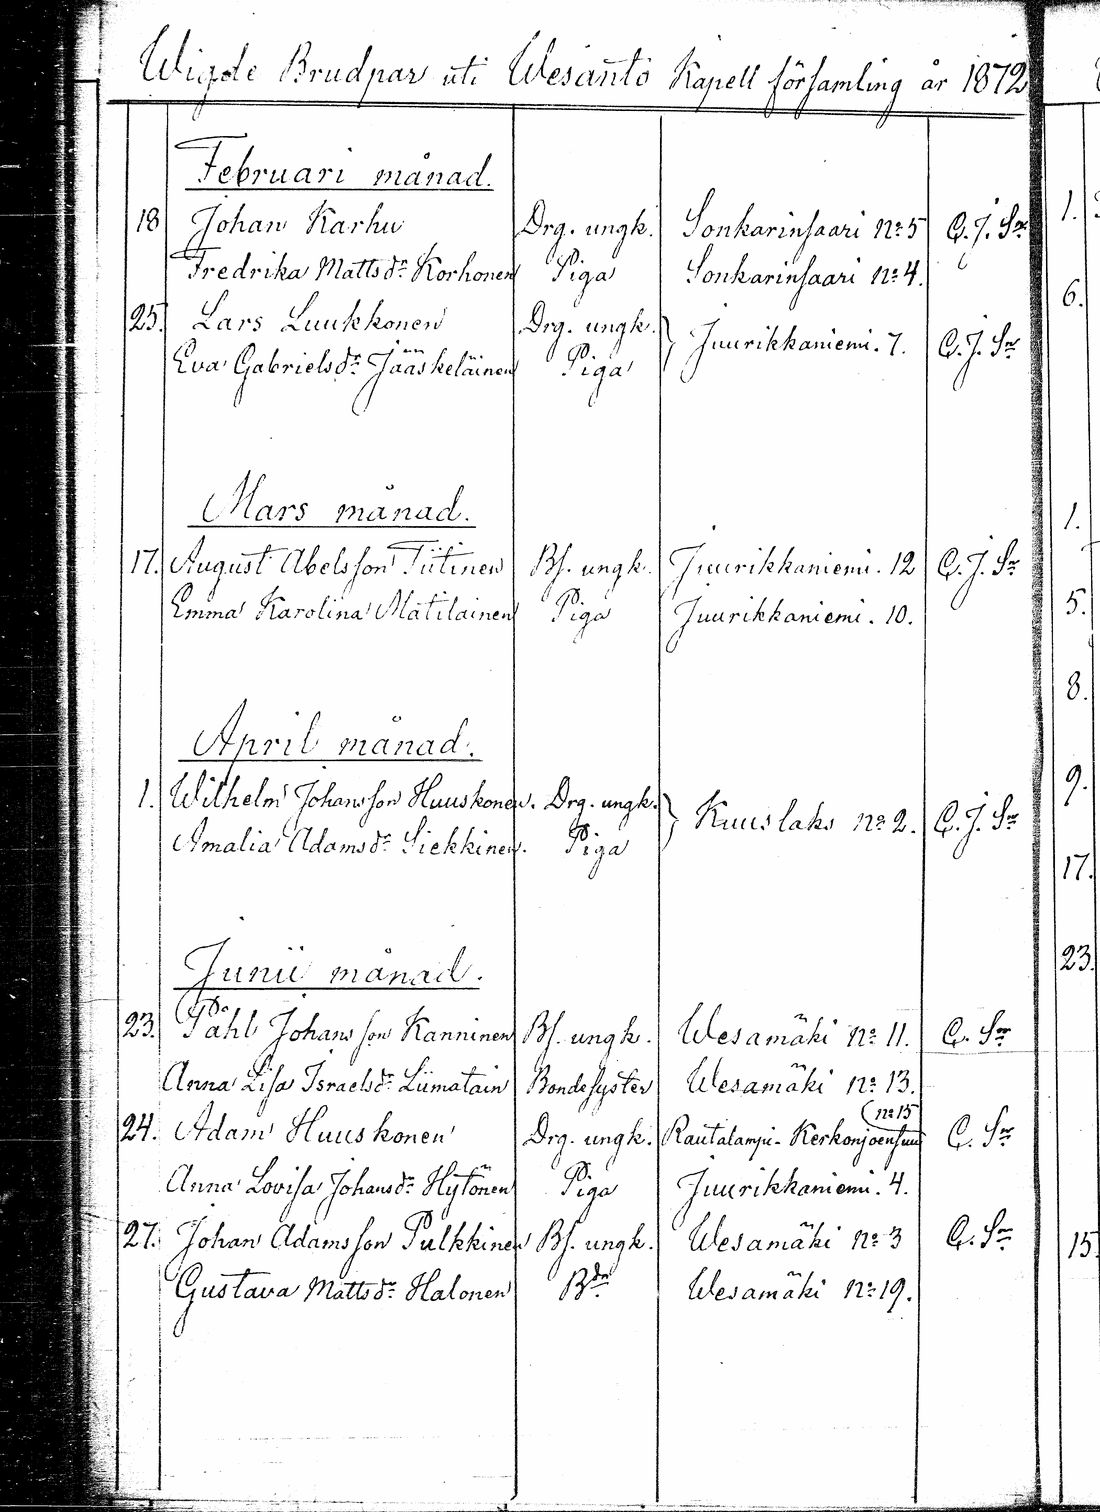 Wigde Brudpar uti Wesanto Kapell församling år 1872
Februari månad.
18 Johan Karhu Drg. ungk. Sonkarinsaari No 5 C. J. Sr
Fredrika Mattsdr Korhonen Piga Sonkarinsaari No 4.
25. Lars Luukkonen Drg. ungk. } Juurikkaniemi. 7. C. J. Sr
Eva Gabrielsdr Jääskeläinen Piga
Mars månad.
17. August Abelsson Tiitinen Bs. ungk. Juurikkaniemi. 12 C. J. Sr
Emma Karolina Matilainen Piga Juurikkaniemi. 10.
April månad.
1. Wilhelm Johansson Huuskonen. Drg. ungk. } Kuuslaks No 2. C. J. Sr
Amalia Adamsdr Siekkinen. Piga
Junii månad.
23. Påhl Johansson Kanninen Bs. ungk. Wesamäki No 11. C. Sr
Anna Lisa Israelsdr Liimatain Bondesyster Wesamäki No 13.
(No 15
24. Adam Huuskonen Drg. ungk. Rautalampi- Kerkonjoensuu C. Sr
Anna Lovisa Johansdr Hytönen Piga Juurikkaniemi. 4.
27. Johan Adamsson Pulkkinen Bs. ungk. Wesamäki No 3 C. Sr
Gustava Mattsdr Halonen Bdr Wesamäki No 19.
1.
6.
1.
5.
8.
9.
17.
23.
15